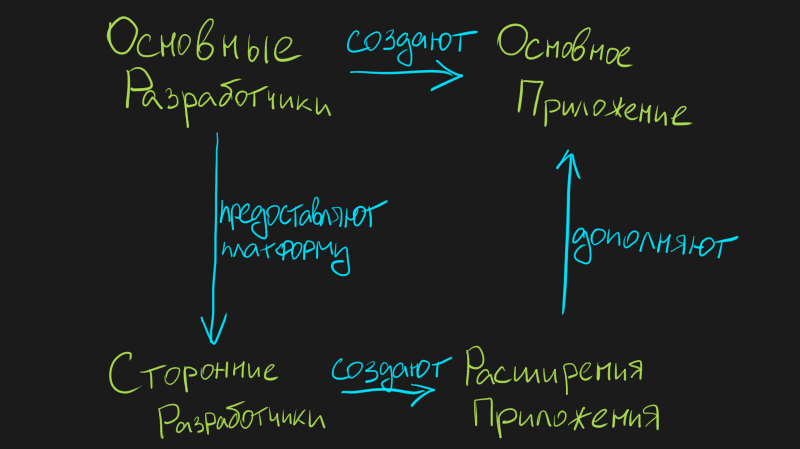 Основные
Разработчики
создают
Основное
Приложение
предоставляют
платформу
дополняют
Сторонние
Разработчики
создают
Расширения
Приложения